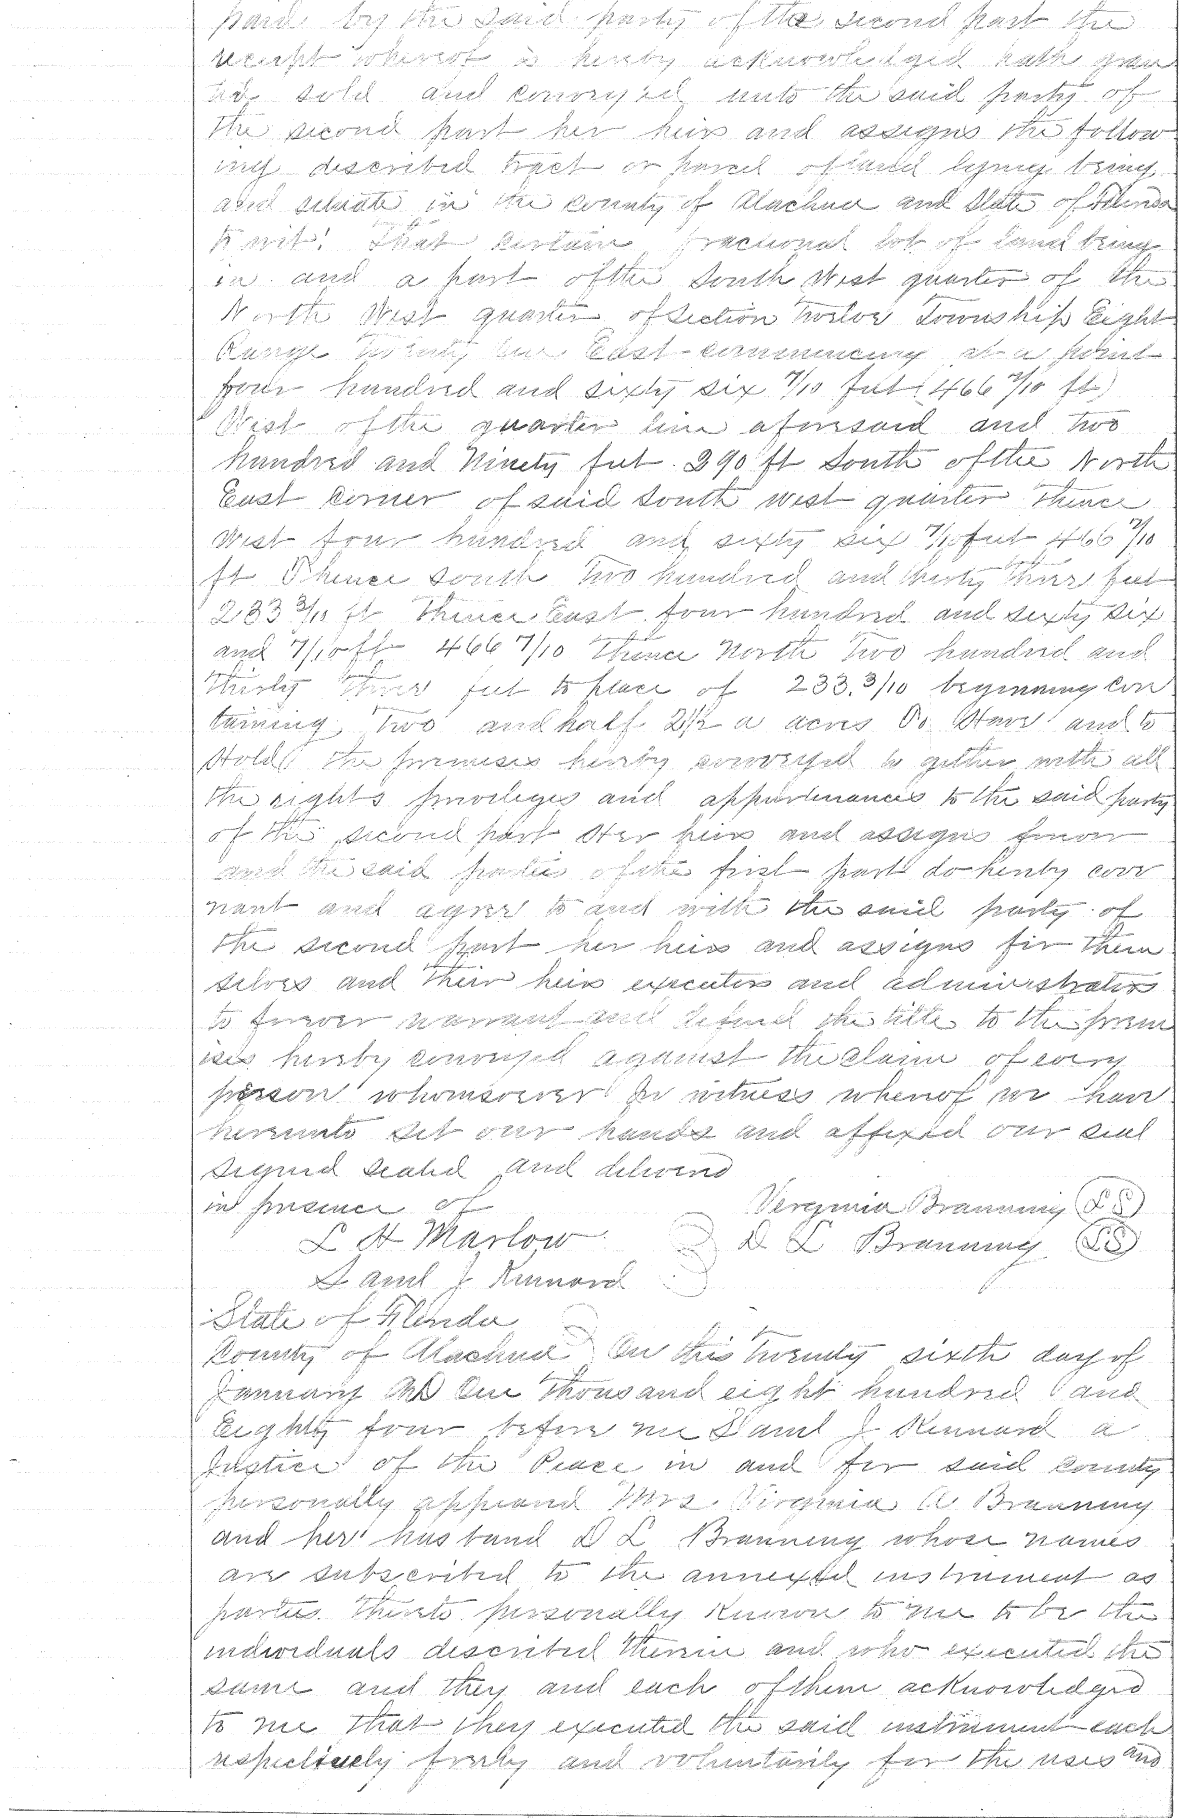 paid by the said party of the second part the
receipt whereof is hereby acknowledged hath gran
ted sold and conveyed unto the said party of
the second part her heirs and assigns the follow
ing described tract or parcel of land lying being
and situate in the county of Alachua and State of Florida
to wit: That certain fractional lot of land being
in and a part of the South West quarter of the
North West quarter of Section Twelve Township Eight
Range Twenty one East commencing at a point
four hundred and sixty six 7/10 feet (466 7/10 ft)
West of the quarter line aforesaid and two
hundred and Ninety feet 290 ft South of the North
East corner of said South west quarter Thence
West four hundred and sixty six 7/10 feet 466 7/10
ft Thence south Two hundred and thirty three feet
233 3/10 ft Thence East four hundred and sixty six
and 7/10 ft 466 7/10 Thence North Two hundred and
Thirty three feet to place of 233.3/10 beginning con
taining Two and half 2 1/2 a acres To Have and to
Hold the premises hereby conveyed to gether with all
the rights privileges and appurtenances to the said party
of the second part Her heirs and assigns forever
and the said parties of the first part do hereby cove
nant and agree to and with the said party of
the second part her heirs and assigns for them
selves and their heirs executors and administrators
to forever warrant and defend the title to the prem
ises hereby conveyed against the claim of every
person whomsoever In witness whereof we have
hereunto set our hands and affixed our seal
signed sealed and delivered
in presence of Verginia Branning (LS)
L H Marlow D L Branning (LS)
Saml J Kennard
State of Florida
County of Alachua On this Twenty sixth day of
January AD One Thousand eight hundred and
Eighty four before me Saml J Kennard a
Justice of the Peace in and for said county
personally appeared Mrs. Virginia A Branning
and her husband D L Branning whose names
are subscribed to the annexed instrument as
parties thereto personally known to me to be the
individuals described therein and who executed the
same and they and each of them acknowledged
to me that they executed the said instrument each
respectively freely and voluntarily for the uses and